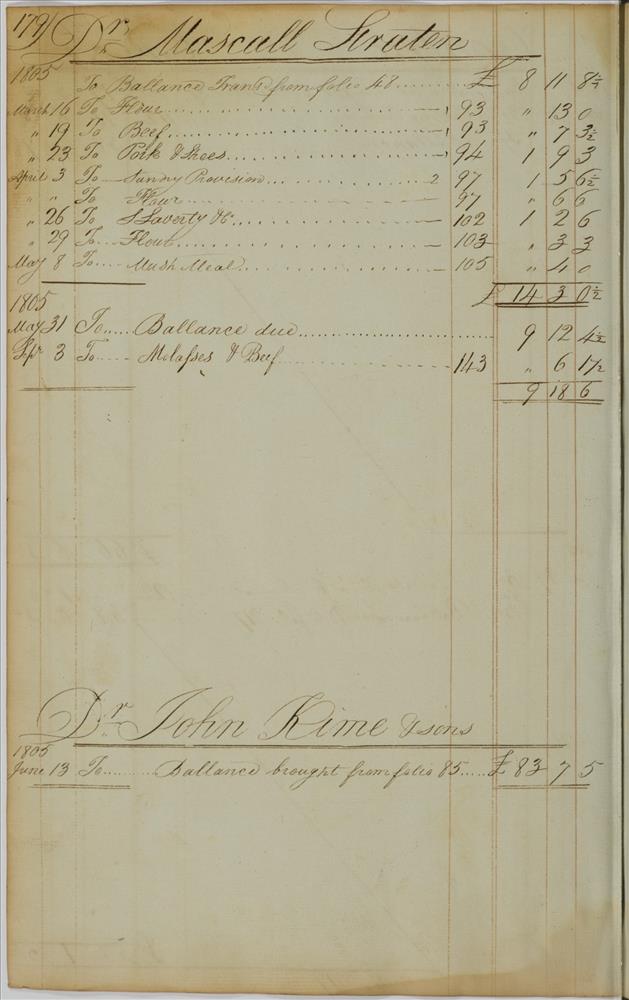 179 Dr Mascall Straten
1805 To Ballance Trans from folio 48 ........ £ 8 11 8½
March 16 To Flour ........ 93 " 13 0
" 19 To Beef ........ 93 " 7 3½
" 23 To Pork & Shoes ........ 94 1 9 3
April 3 To Sundry Provision ........ 2 97 1 5 6½
" " To Flour ........ 97 " 6 6
" 26 To S Laverty &c ........ 102 1 2 6
" 29 To Flour ........ 103 " 3 3
May 8 To Mush Meal ........ 105 " 4 0
£ 14 3 0½
1805
May 31 To ...... Ballance due ........ 9 12 4½
Spr 3 To ...... Molasses & Beef ........ 143 " 6 1½
9 18 6
Dr John Kime & sons
1805
June 13 To ........ Ballance brought from folio 85 ..... £ 83 7 5